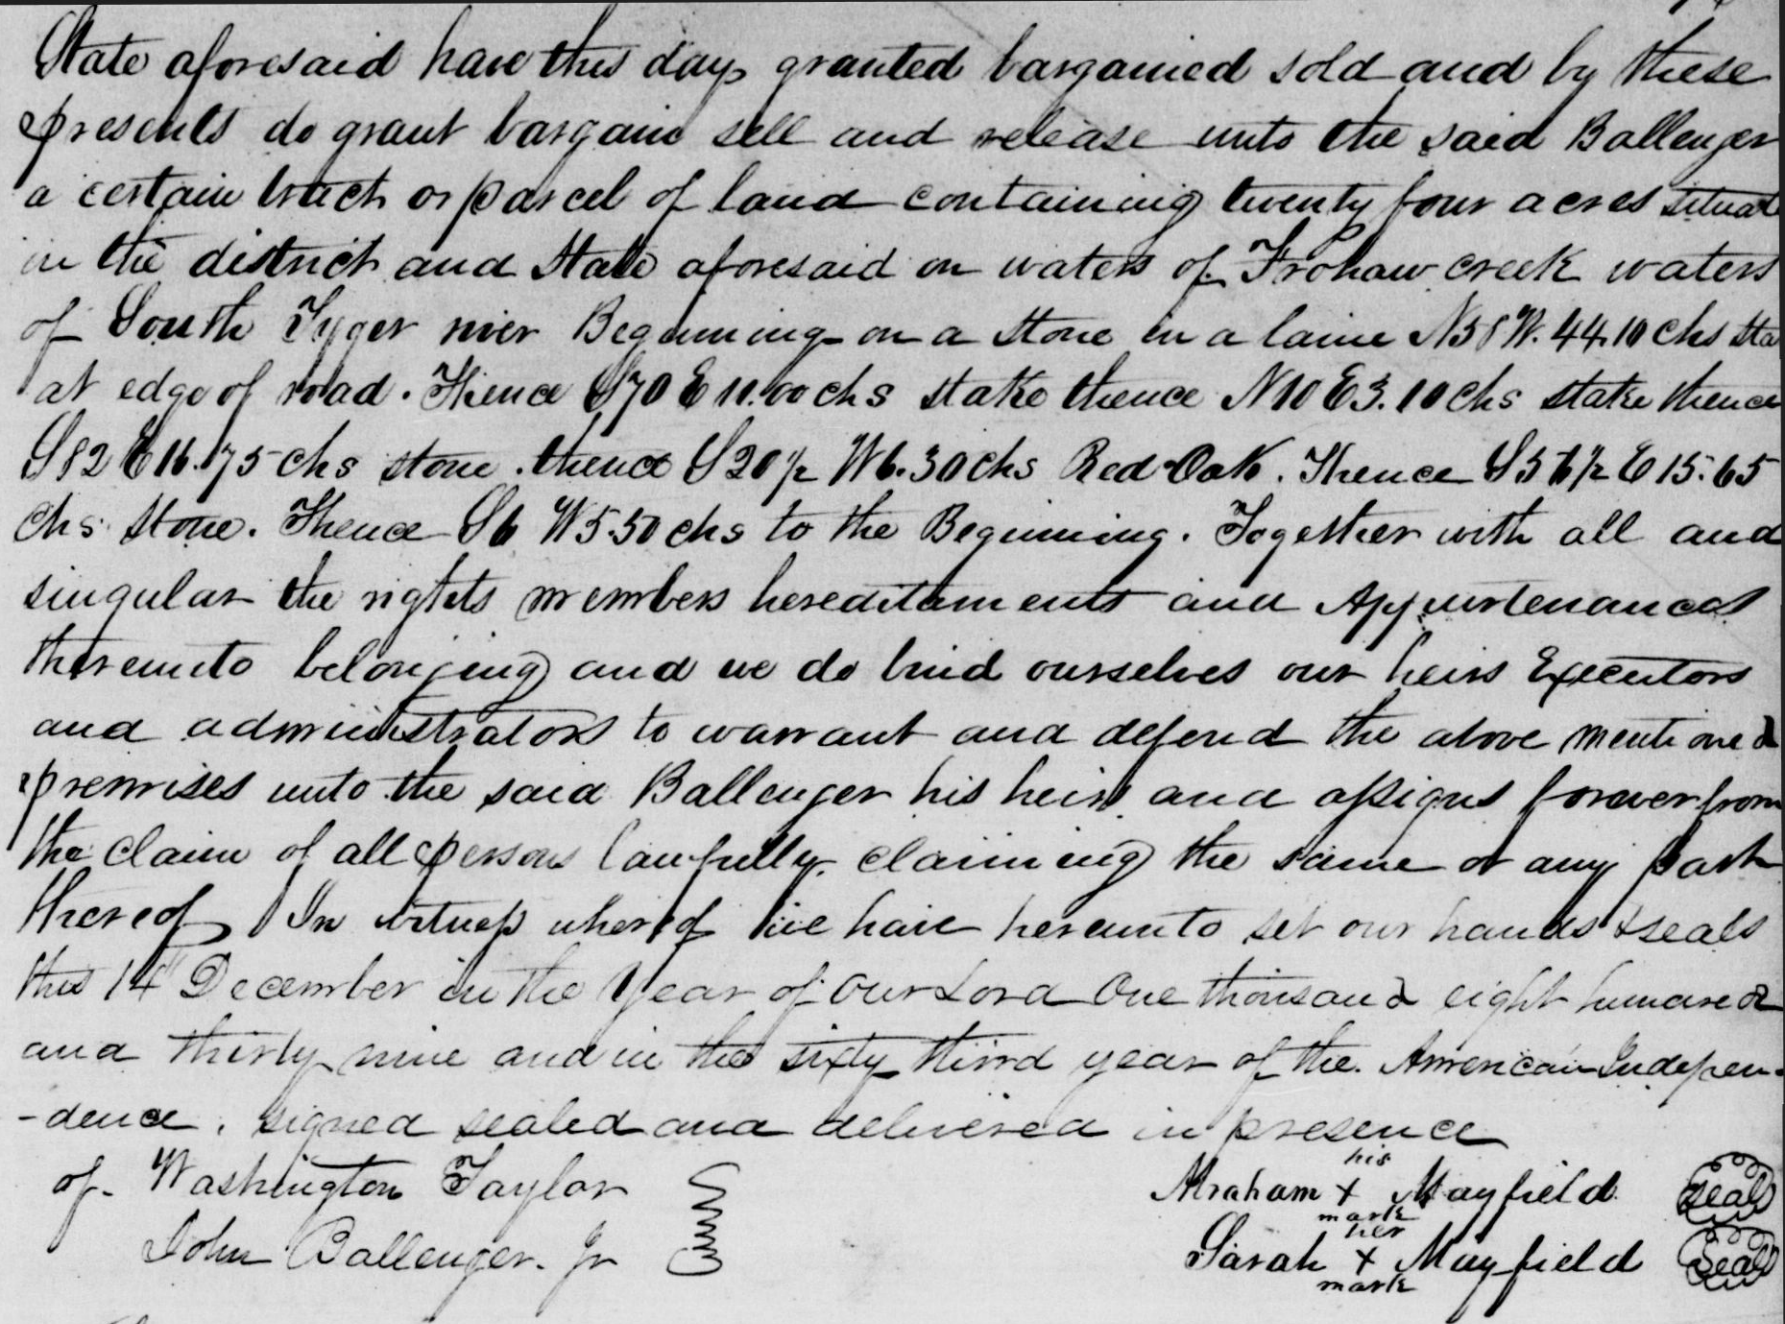 State aforesaid have this day granted bargained sold and by these
presents do grant bargain sell and release unto the said Ballenger
a certain tract or parcel of land containing twenty four acres situat
in the district and State aforesaid on waters of Frohaw creek waters
of South Tyger river Beginning on a Stone in a laine N58W. 44.10 chs Sta
at edge of road. Thence S70E 11.00 chs stake thence N10E3.10 chs stake thence
S82E16.75 chs stone. thence S20½ W6.30 chs Red Oak. Thence E 15.65
chs Stone. Thence S6 W5.50 chs to the Beginning. Together with all and
singular the rights members hereditaments and Appurtenances
thereunto belonging and we do bind ourselves our heirs Executors
and administrators to warrant and defend the above mentioned
premises unto the said Ballenger his heirs and assigns forever from
the claim of all persons lawfully claiming the same or any part
thereof In witness whereof we have hereunto set our hands & seals
this 14th December in the Year of our Lord One thousand eight hundred
and thirty nine and in the sixty third year of the American Indepen-
-dence. signed sealed and delivered in presence
of. Washington Taylor
his
Abraham + Mayfield Seal
mark
John Ballenger. Jr
her
Sarah + Mayfield Seal
mark